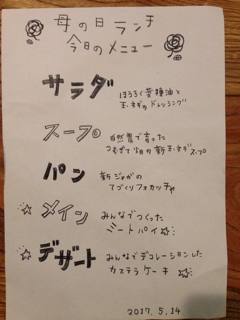 母の日ランチ
今日のメニュー
サラダ
ほろろく菜種油と
玉ネギのドレッシング
スープ
自然農で育った
つむぎて畑の新玉ネギスープ
パン
新ジャガの
てづくりフォカッチャ
メイン
みんなでつくった
ミートパイ
デザート
みんなでデコレーションした
カステラケーキ
2017.5.14